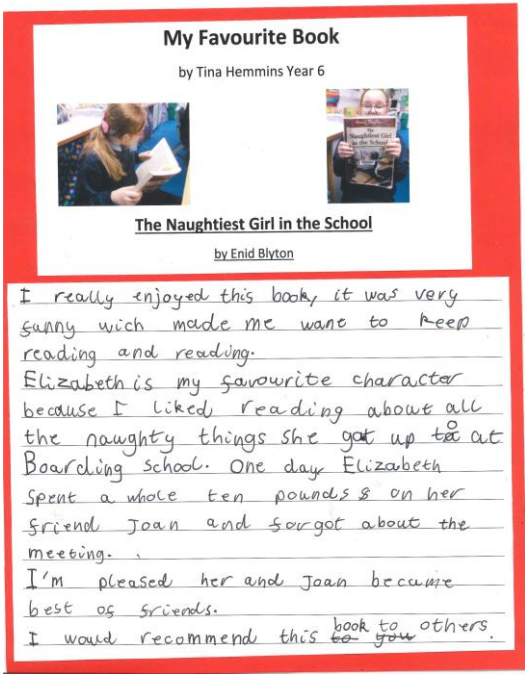 My Favourite Book
by Tina Hemmins Year 6
Naughtiest Girl
in the School
The Naughtiest Girl in the School
by Enid Blyton
I really enjoyed this book, it was very
funny wich made me want to keep
reading and reading.
Elizabeth is my favourite character
because I liked reading about all
the naughty things she got up to at
Boarding School. One day Elizabeth
spent a whole ten pounds on her
friend Joan and forgot about the
meeting.
I'm pleased her and Joan became
best of friends.
I would recommend this book to others.